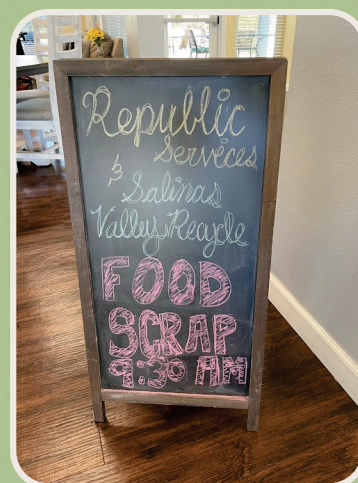 Republic
Services
& Salinas
Valley Recycle
FOOD
SCRAP
9:30 AM